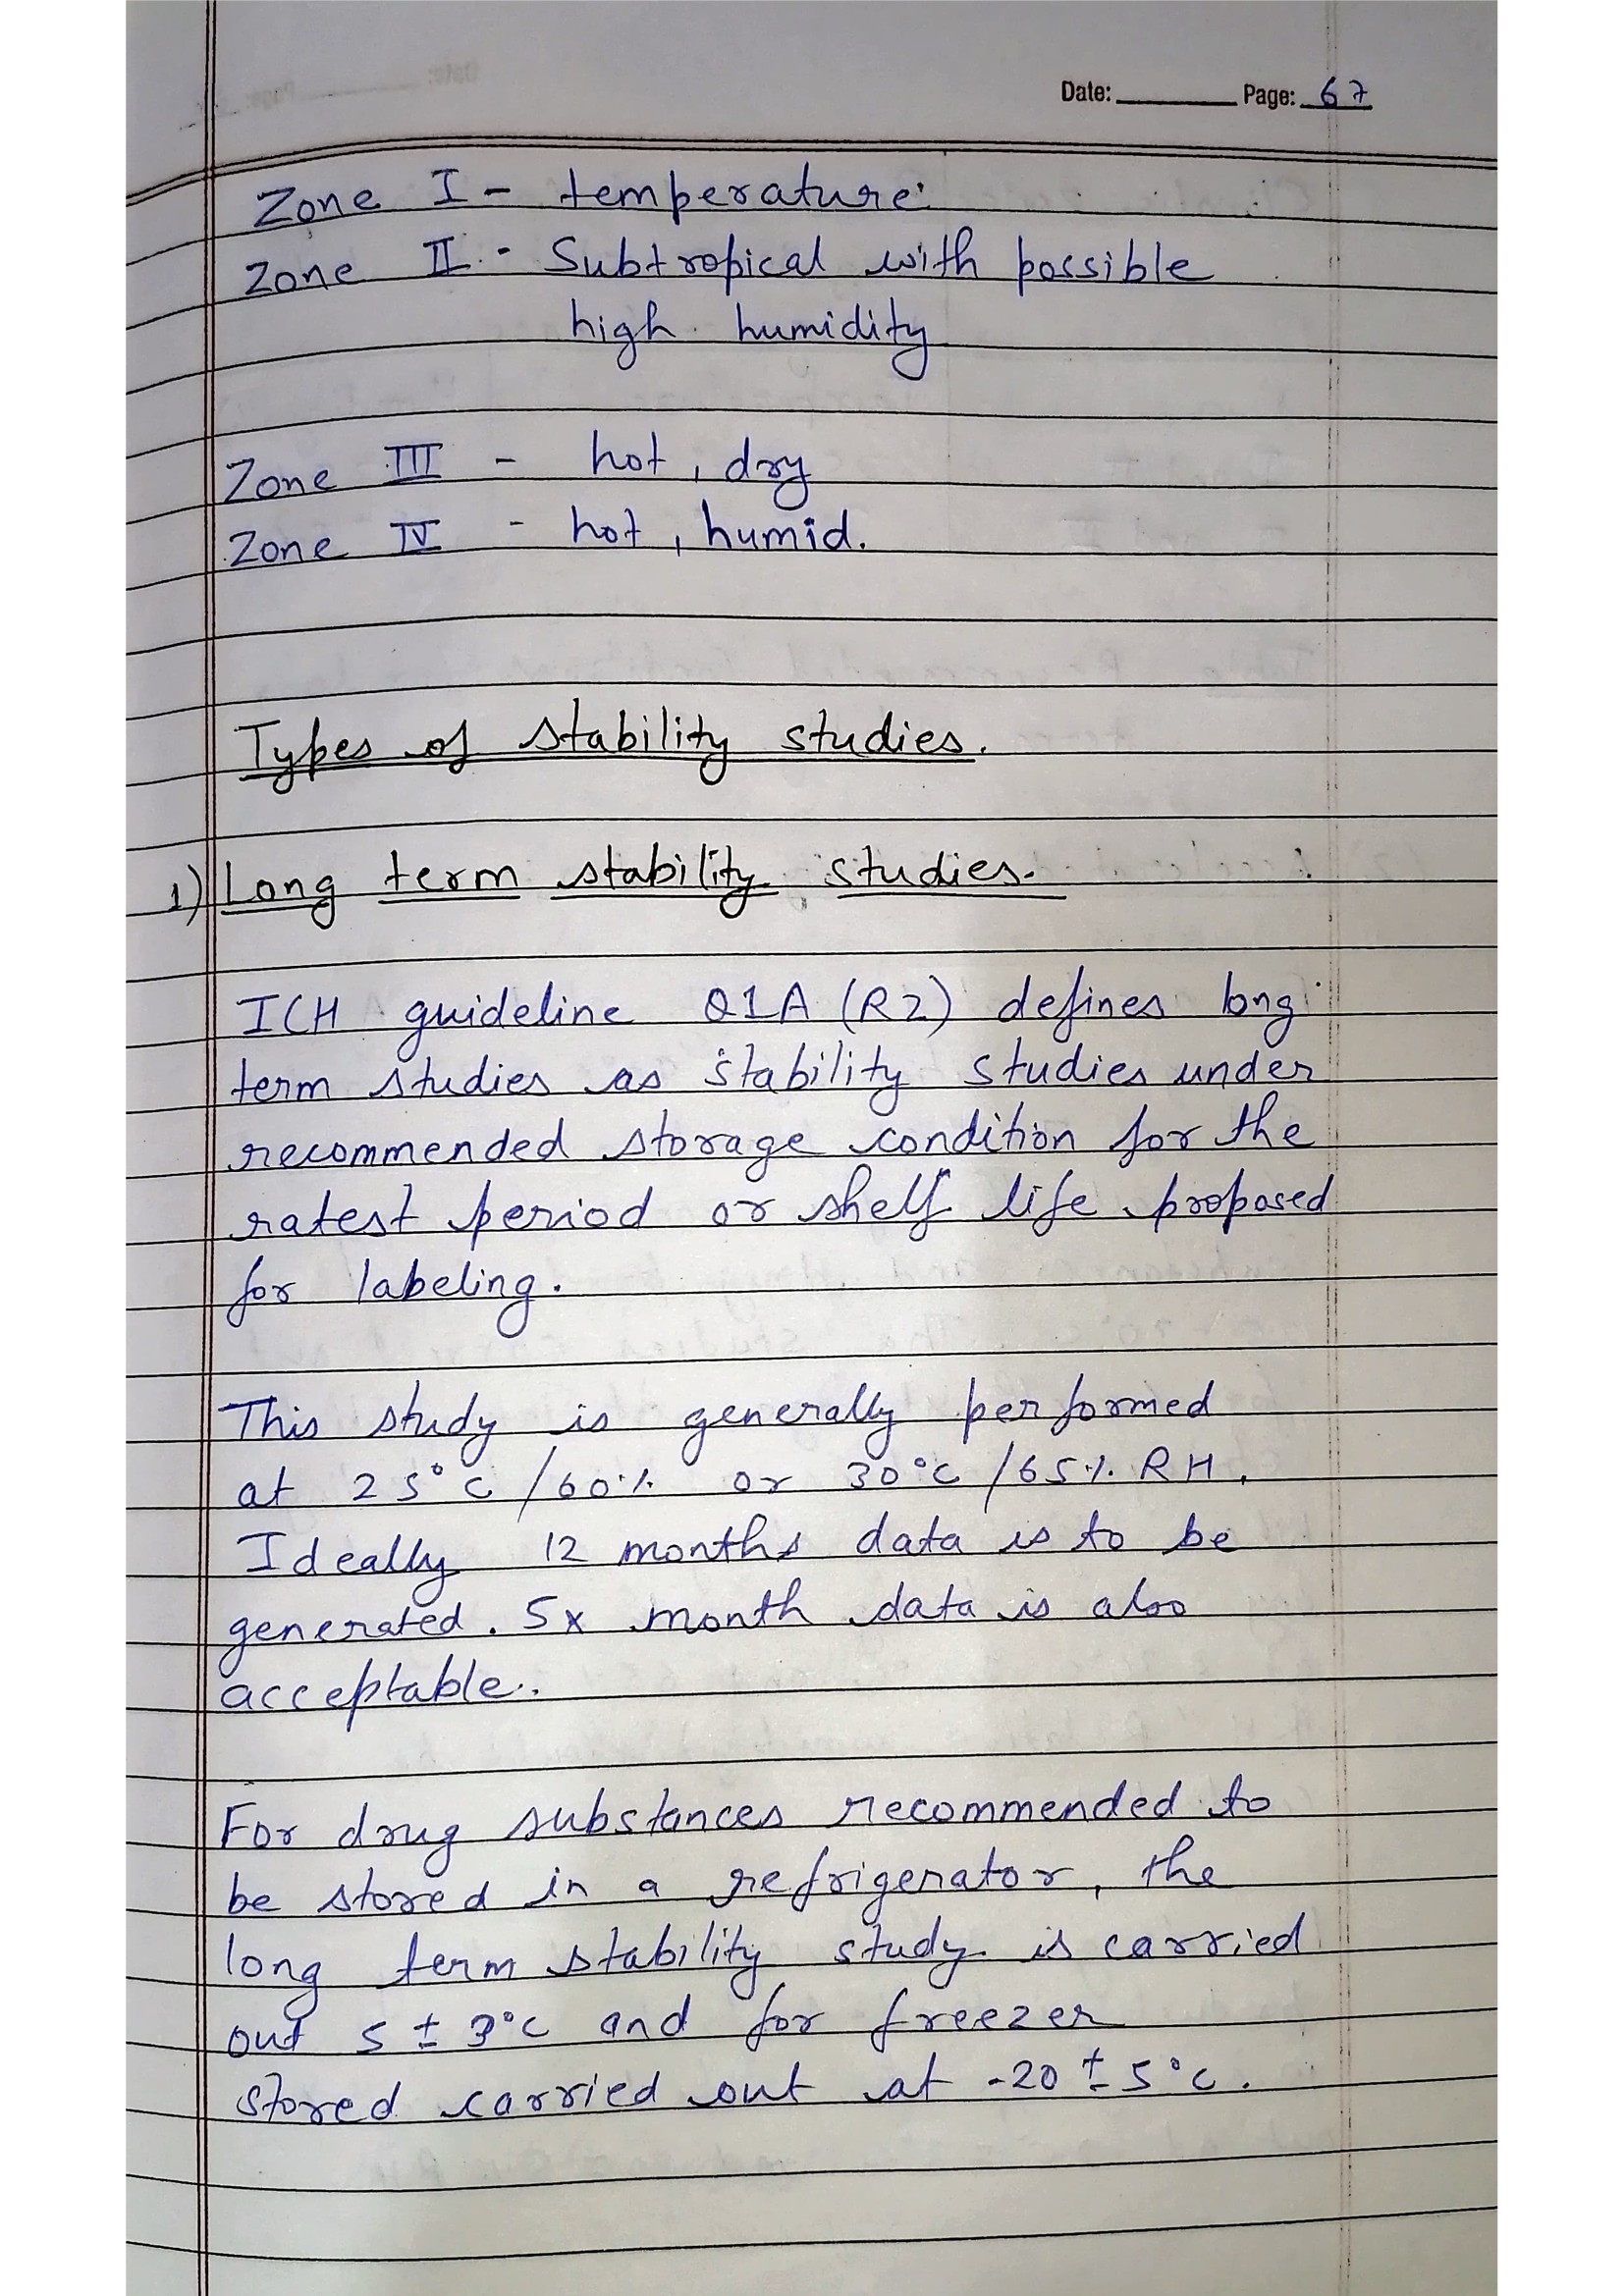 Date: Page: 67
Zone I - temperature
Zone II - Subtropical with possible
high humidity
Zone III - hot, dry
Zone IV - hot, humid.
Types of stability studies.
1) Long term stability studies.
ICH guideline Q1A (R2) defines long
term studies as stability studies under
recommended storage condition for the
ratest period or shelf life proposed
for labeling.
This study is generally performed
at 25°C /60% or 30°C /65% RH,
Ideally 12 months data is to be
generated. 5x month data is also
acceptable.
For drug substances recommended to
be stored in a refrigerator, the
long term stability study is carried
out 5 ± 3°C and for freezer
stored carried out at -20 ± 5°C.